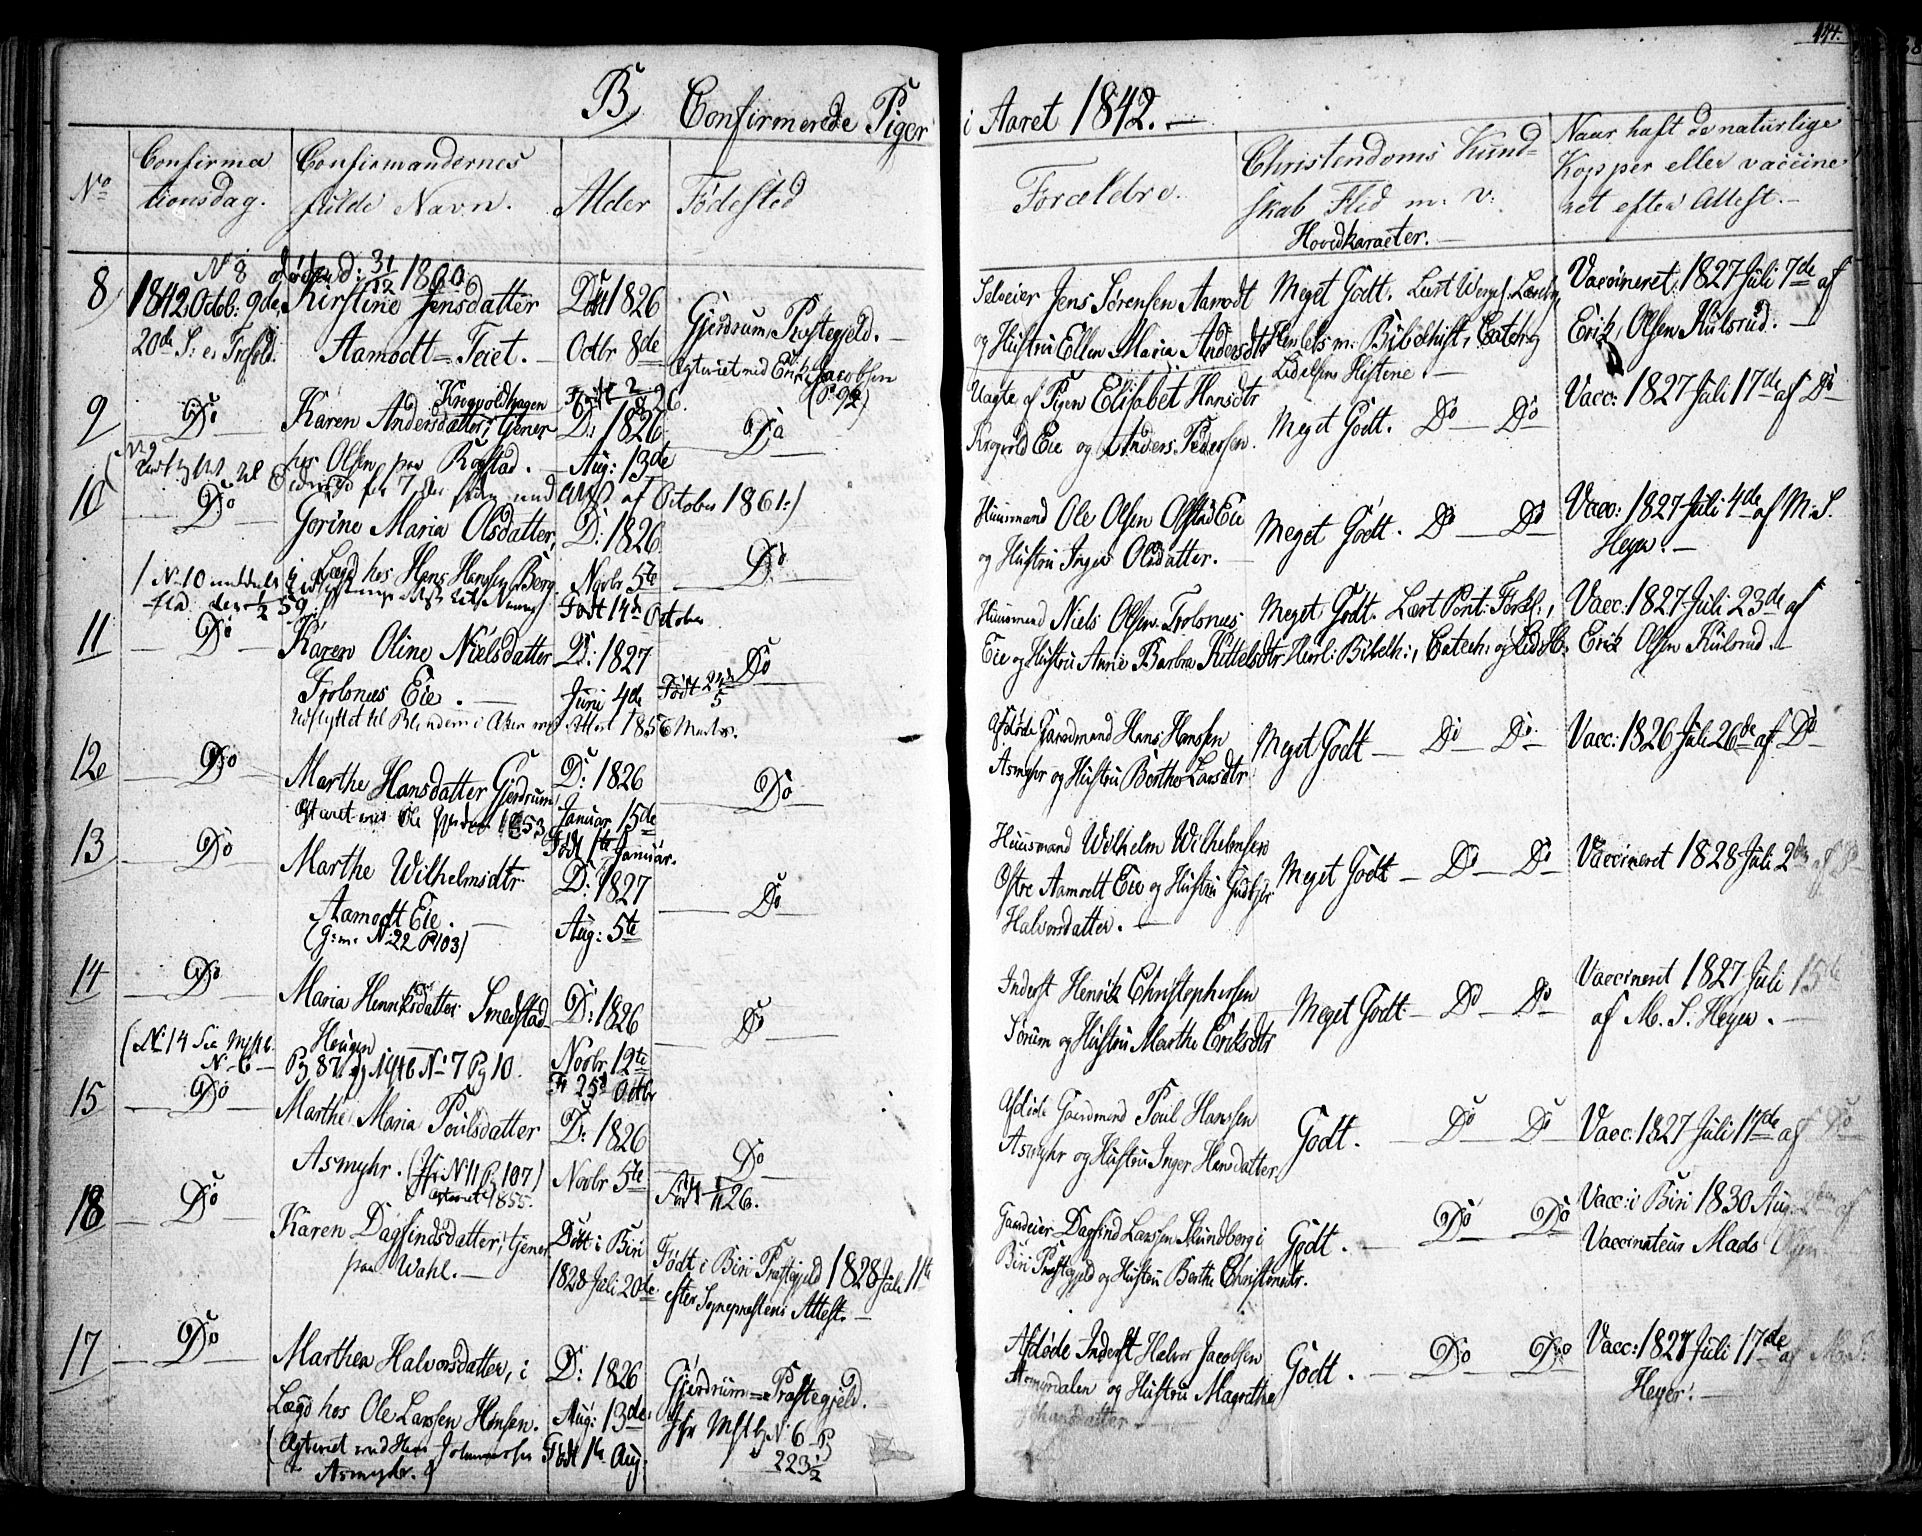 144.
B, Confirmerede Piger i Aaret 1842.—
No
Confirma
tionsdag.
Confirmandernes
fulde Navn.
Alder
Fødested
Forældre.
Christendoms Kund-
skab Flid m. v:
Hovedkaracter.—
Naar haft de naturlige
Kopper eller vaccine
ret efter Attest.—
N 8 død d: 31/12 1860
8,
1842 Octob: 9de,
20de S: e: Trefold.
Kirstine Jensdatter
Aamodt-Teiet.—
Døbt 1826
Octbr 8de
Gjerdrum Præstegjeld.—
Ægteviet med Erik Jacobsen
(P. 92)
Selveier Jens Sørensen Aamodt
og Hustru Ellen Maria Andersdtr
Meget Godt. Lært
Bibelhist,
Lidelsens Histrie.—
Vaccineret 1827 Juli 7de af
Erik Olsen Kulsrud.—
9
Do
Krogvoldhagen
Karen Andersdatter, tjener
hos Olsen paa Rogstad.—
D: 1826
Aug: 13de
Do
Uægte af Pigen Elisabet Hansdtr
Krogvold Eie og Anders Pedersen.
Meget Godt. Do Do
Vacc: 1827 Juli 17de af Do
N 9
Eidsvold
October 1861:)
10
Do
Gorine Maria Olsdatter,
i Lægd hos Hans Hansen Berg.
D: 1826
Novbr 5te
Født 14de October
Do
Huusmand Ole Olsen Olstad Eie
og Hustru Inger Olsdatter.—
Meget Godt. Do Do
Vacc: 1827 Juli 4de af M. S.
Heyer.—
(No 10 meddelt
59.
11
Do
Karen Oline Nielsdatter
Frolsnes Eie.—
Udflyttet til Blindern i Aker med Attest 1856 Marts.
D: 1827
Juni 4de
Født 24/5
Do
Huusmand Niels Olsen Frolsnes
Eie og Hustru Anne Barbra Kittelsdtr
Meget Godt. Lært Pont: Forkl:,
Herl: Bibelh:, Catech: og Lids H:
Vacc: 1827 Juli 23de af
Erik Olsen Kulsrud.—
12
Do
Marthe Hansdatter Gjerdrum
Ægteviet med Ole 1853
D: 1826
Januar 15de
Født 1ste Januar.
Do
Afdøde Gaardmand Hans Hansen
Asmyhr og Hustru Berthe Larsdtr
Meget Godt — Do Do
Vacc: 1826 Juli 26de af Do
13
Do
Marthe Wilhelmsdtr
Aamodt Eie.—
(G: m: N: 22 P 103)
D: 1827
Aug: 5te
Do
Huusmand Wilhelm Wilhelmsen
Østre Aamodt Eie og Hustru Gudbjør
Halvorsdatter.—
Meget Godt — Do Do
Vaccineret 1828 Juli 2den af Do
14
Do
Maria Henriksdatter Smedstad
Heugen
Pg 87 og 1846 No 7 Pg 10.
(No 14 See
N. 6
D: 1826
Novbr 12te
F: 25de Octbr
Do
Inderst Henrik Christophersen
Sørum og Hustru Marthe Eriksdtr
Meget Godt — Do Do
Vaccineret 1827 Juli 15de
af M. S. Heyer.—
15
Do
Marthe Maria Poulsdatter
Asmyhr. (Jfr N: 11 Pg 107)
Ægteviet 1855.
D: 1826
Novbr 5te
Født 1/11 26.
Do
Afdøde Gaardmand Poul Hansen
Asmyhr og Hustru Inger Hansdatter
Godt.— Do Do
Vacc: 1827 Juli 17de af Do
18
Do
Karen Dagfindsdatter, tjener
paa Wahl.—
Døbt i Biri
1828 Juli 20de
Født i Biri Præstegjeld 1828 Juli 11te
efter Sognepræstens Attest.—
Gaardeier Dagfind Larsen Skundberg i
Biri Præstegjeld og Hustru Berthe Christensdtr.
Godt.— Do Do
Vacc: i Biri 1830 Aug. 2den af
Vaccinateur Mads Olsen
17
Do
Marthea Halvorsdatter, i
Lægd hos Ole Larsen Hønsen.
(Ægteviet med Hans Johannessen
Asmyhr.)
D: 1826
Aug: 13de
Født 1ste Aug:
Gjerdrum Præstegjeld.
Jfr N: 6 P
223 1/2
Afdøde Inderst Halvor Jacobsen
Asmyrdalen og Hustru Magrethe
Johansdatter
Godt.— Do Do
Vacc: 1827 Juli 17de af M. S:
Heyer.—